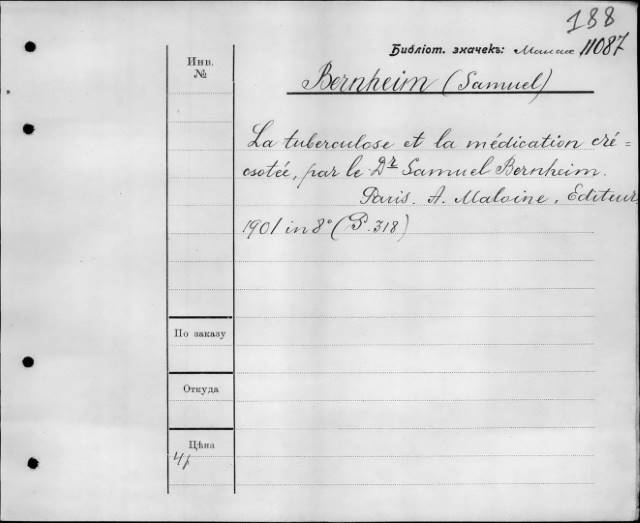 188
Библіот. значекъ: 11087
Инв.
№
Bernheim (Samuel)
La tuberculose et la médication cré=
osotée, par le Dr Samuel Bernheim.
Paris. A. Maloine, Editeur
1901 in 8° (P. 318)
По заказу
Откуда
Цѣна
4р